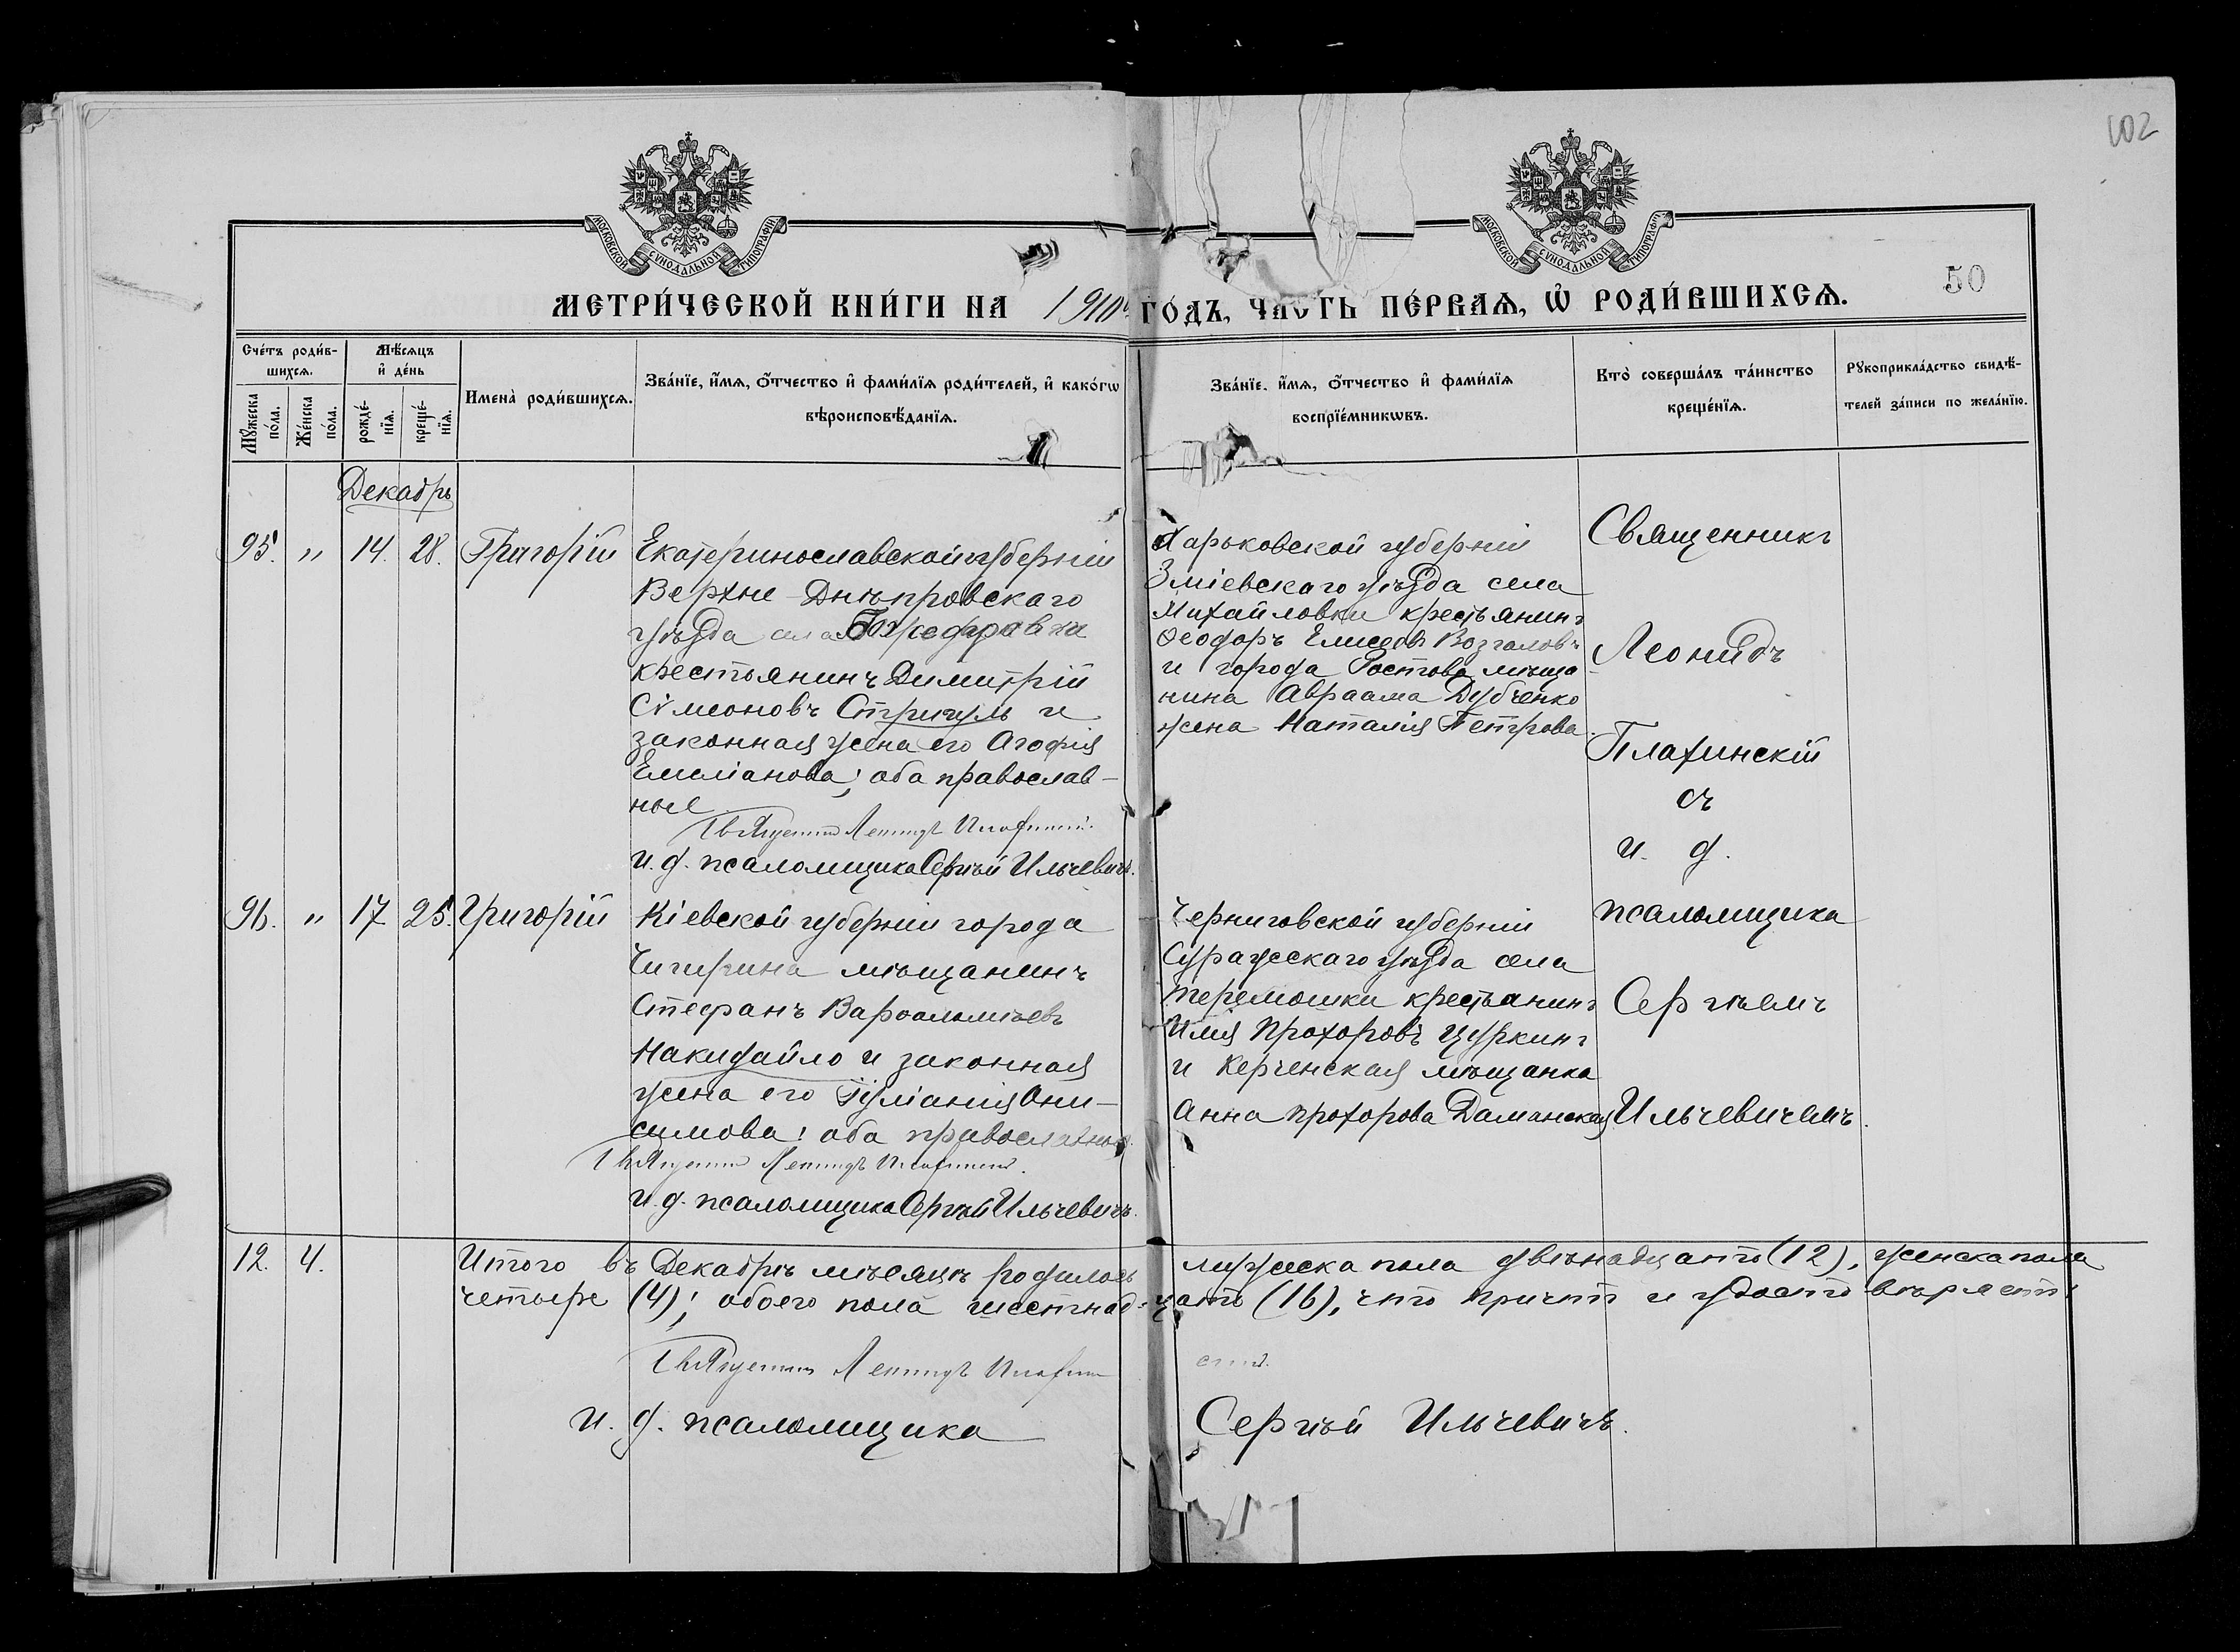 102
МОСКОВСКОЙ СУНОДАЛЬНОЙ ТИПОГРАФІИ.
МОСКОВСКОЙ СУНОДАЛЬНОЙ ТИПОГРАФІИ.
50
МЕТРИ́ЧЕСКОЙ КНИ́ГИ НА 1910й ГО́ДЪ, ЧАСТЬ ПЕ́РВАѦ, Ѡ҆ РОДИ́ВШИХСѦ.
Сче́тъ роди́в-
шихсѧ.
Мѣ́сѧцъ
и҆ де́нь
Мꙋ́жеска по́ла.
Же́нска по́ла.
рожде́-
нїѧ.
креще́-
нїѧ.
Имена̀ роди́вшихсѧ.
Зва́нїе, и҆́мѧ, ѻ҆́тчество и҆ фами́лїѧ роди́телей, и҆ како́гѡ
вѣроисповѣ́данїѧ.
Зва́нїе, и҆́мѧ, ѻ҆́тчество и҆ фами́лїѧ
воспрїе́мникѡвъ.
Кто̀ соверша́лъ та́инство
креще́нїѧ.
Рꙋкоприкла́дство свидѣ́-
телей за́писи по жела́нїю.
Декабрь
95. " 14. 28. Григорій
Екатеринославской губерніи
Верхне-Днѣпровскаго
уѣзда села
крестьянинъ Димитрій
Сѵмеоновъ Стригуль и
законная жена его Агафія
Емиліанова; оба православ-
ные
Священникъ Леонидъ Плахинскій.
и. д. псаломщика Сергѣй Ильчевичъ.
Харьковской губерніи
Зміевскаго уѣзда села
Михайловки крестьянинъ
Ѳеодоръ Елисеевъ
и города Ростова мѣща-
нина Авраама Дубченко
жена Наталія Петрова.
Священникъ
Леонидъ
Плахинскій
съ
и. д.
псаломщика
Сергѣемъ
Ильчевичемъ.
96. " 17 25. Григорій
Кіевской губерніи города
Чигирина мѣщанинъ
Стефанъ Варѳоломѣевъ
Накидайло и законная
жена его Іуліанія Они-
симова: оба православные.
Священникъ Леонидъ Плахинскій.
и. д. псаломщика Сергѣй Ильчевичъ.
Черниговской губерніи
Суражскаго уѣзда села
Теремошки крестьянинъ
Илія Прохоровъ Цуркинъ
и Керченская мѣщанка
Анна Прохорова Даманская.
12. 4.
Итого въ Декабрѣ мѣсяцѣ родилось мужеска пола двѣнадцать (12), женска пола
четыре (4); обоего пола шестнад-цать (16), что причтъ и удостовѣряетъ:
Священникъ Леонидъ Плахин скій.
и. д. псаломщика Сергѣй Ильчевичъ.